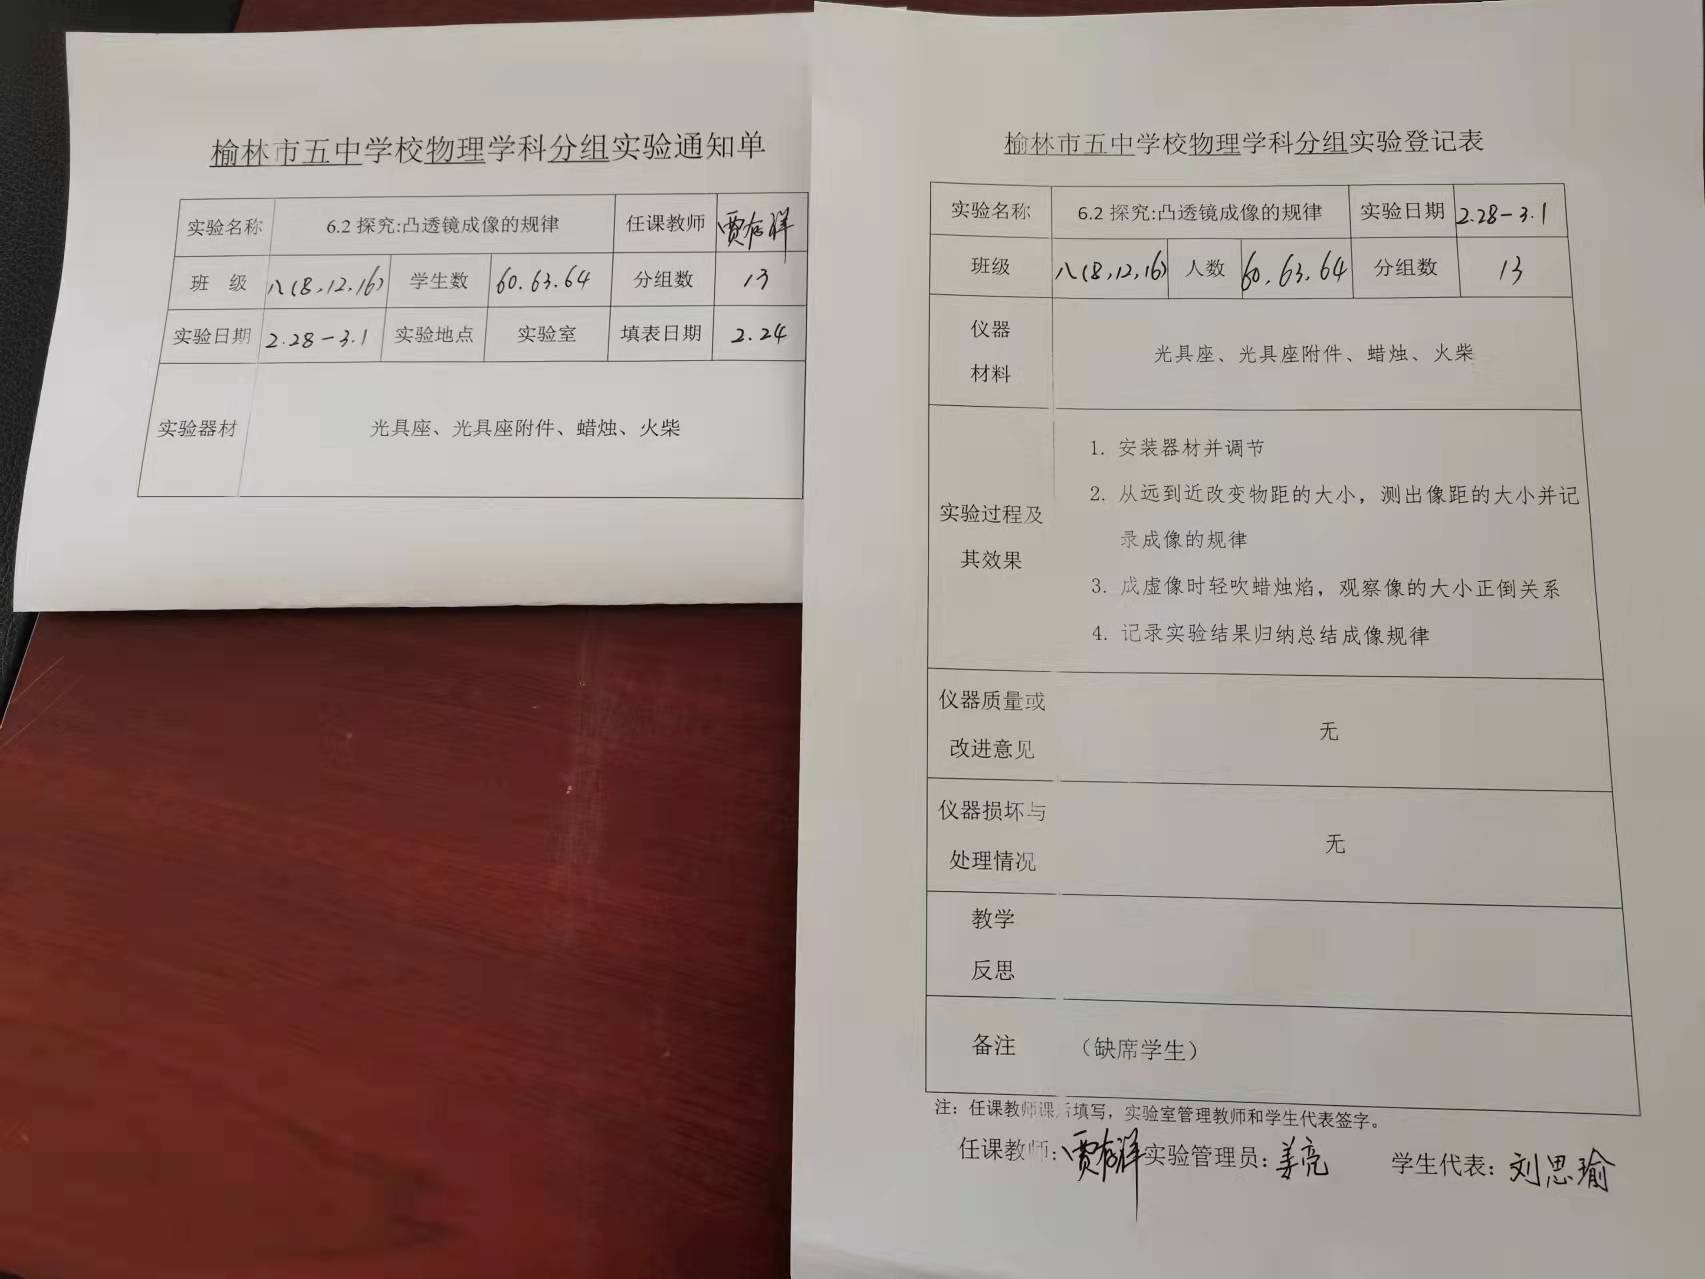 榆林市五中学校物理学科分组实验通知单
实验名称 6.2 探究:凸透镜成像的规律 任课教师 贾存祥
班 级 八(8,12,16) 学生数 60.63.64 分组数 13
实验日期 2.28-3.1 实验地点 实验室 填表日期 2.24
实验器材 光具座、光具座附件、蜡烛、火柴
榆林市五中学校物理学科分组实验登记表
实验名称 6.2 探究:凸透镜成像的规律 实验日期 2.28-3.1
班级 八(8,12,16) 人数 60,63,64 分组数 13
仪器
材料
光具座、光具座附件、蜡烛、火柴
实验过程及
其效果
1. 安装器材并调节
2. 从远到近改变物距的大小，测出像距的大小并记
录成像的规律
3. 成虚像时轻吹蜡烛焰，观察像的大小正倒关系
4. 记录实验结果归纳总结成像规律
仪器质量或
改进意见
无
仪器损坏与
处理情况
无
教学
反思
备注 （缺席学生）
注：任课教师课后填写，实验室管理教师和学生代表签字。
任课教师: 贾存祥 实验管理员: 姜亮 学生代表: 刘思瑜